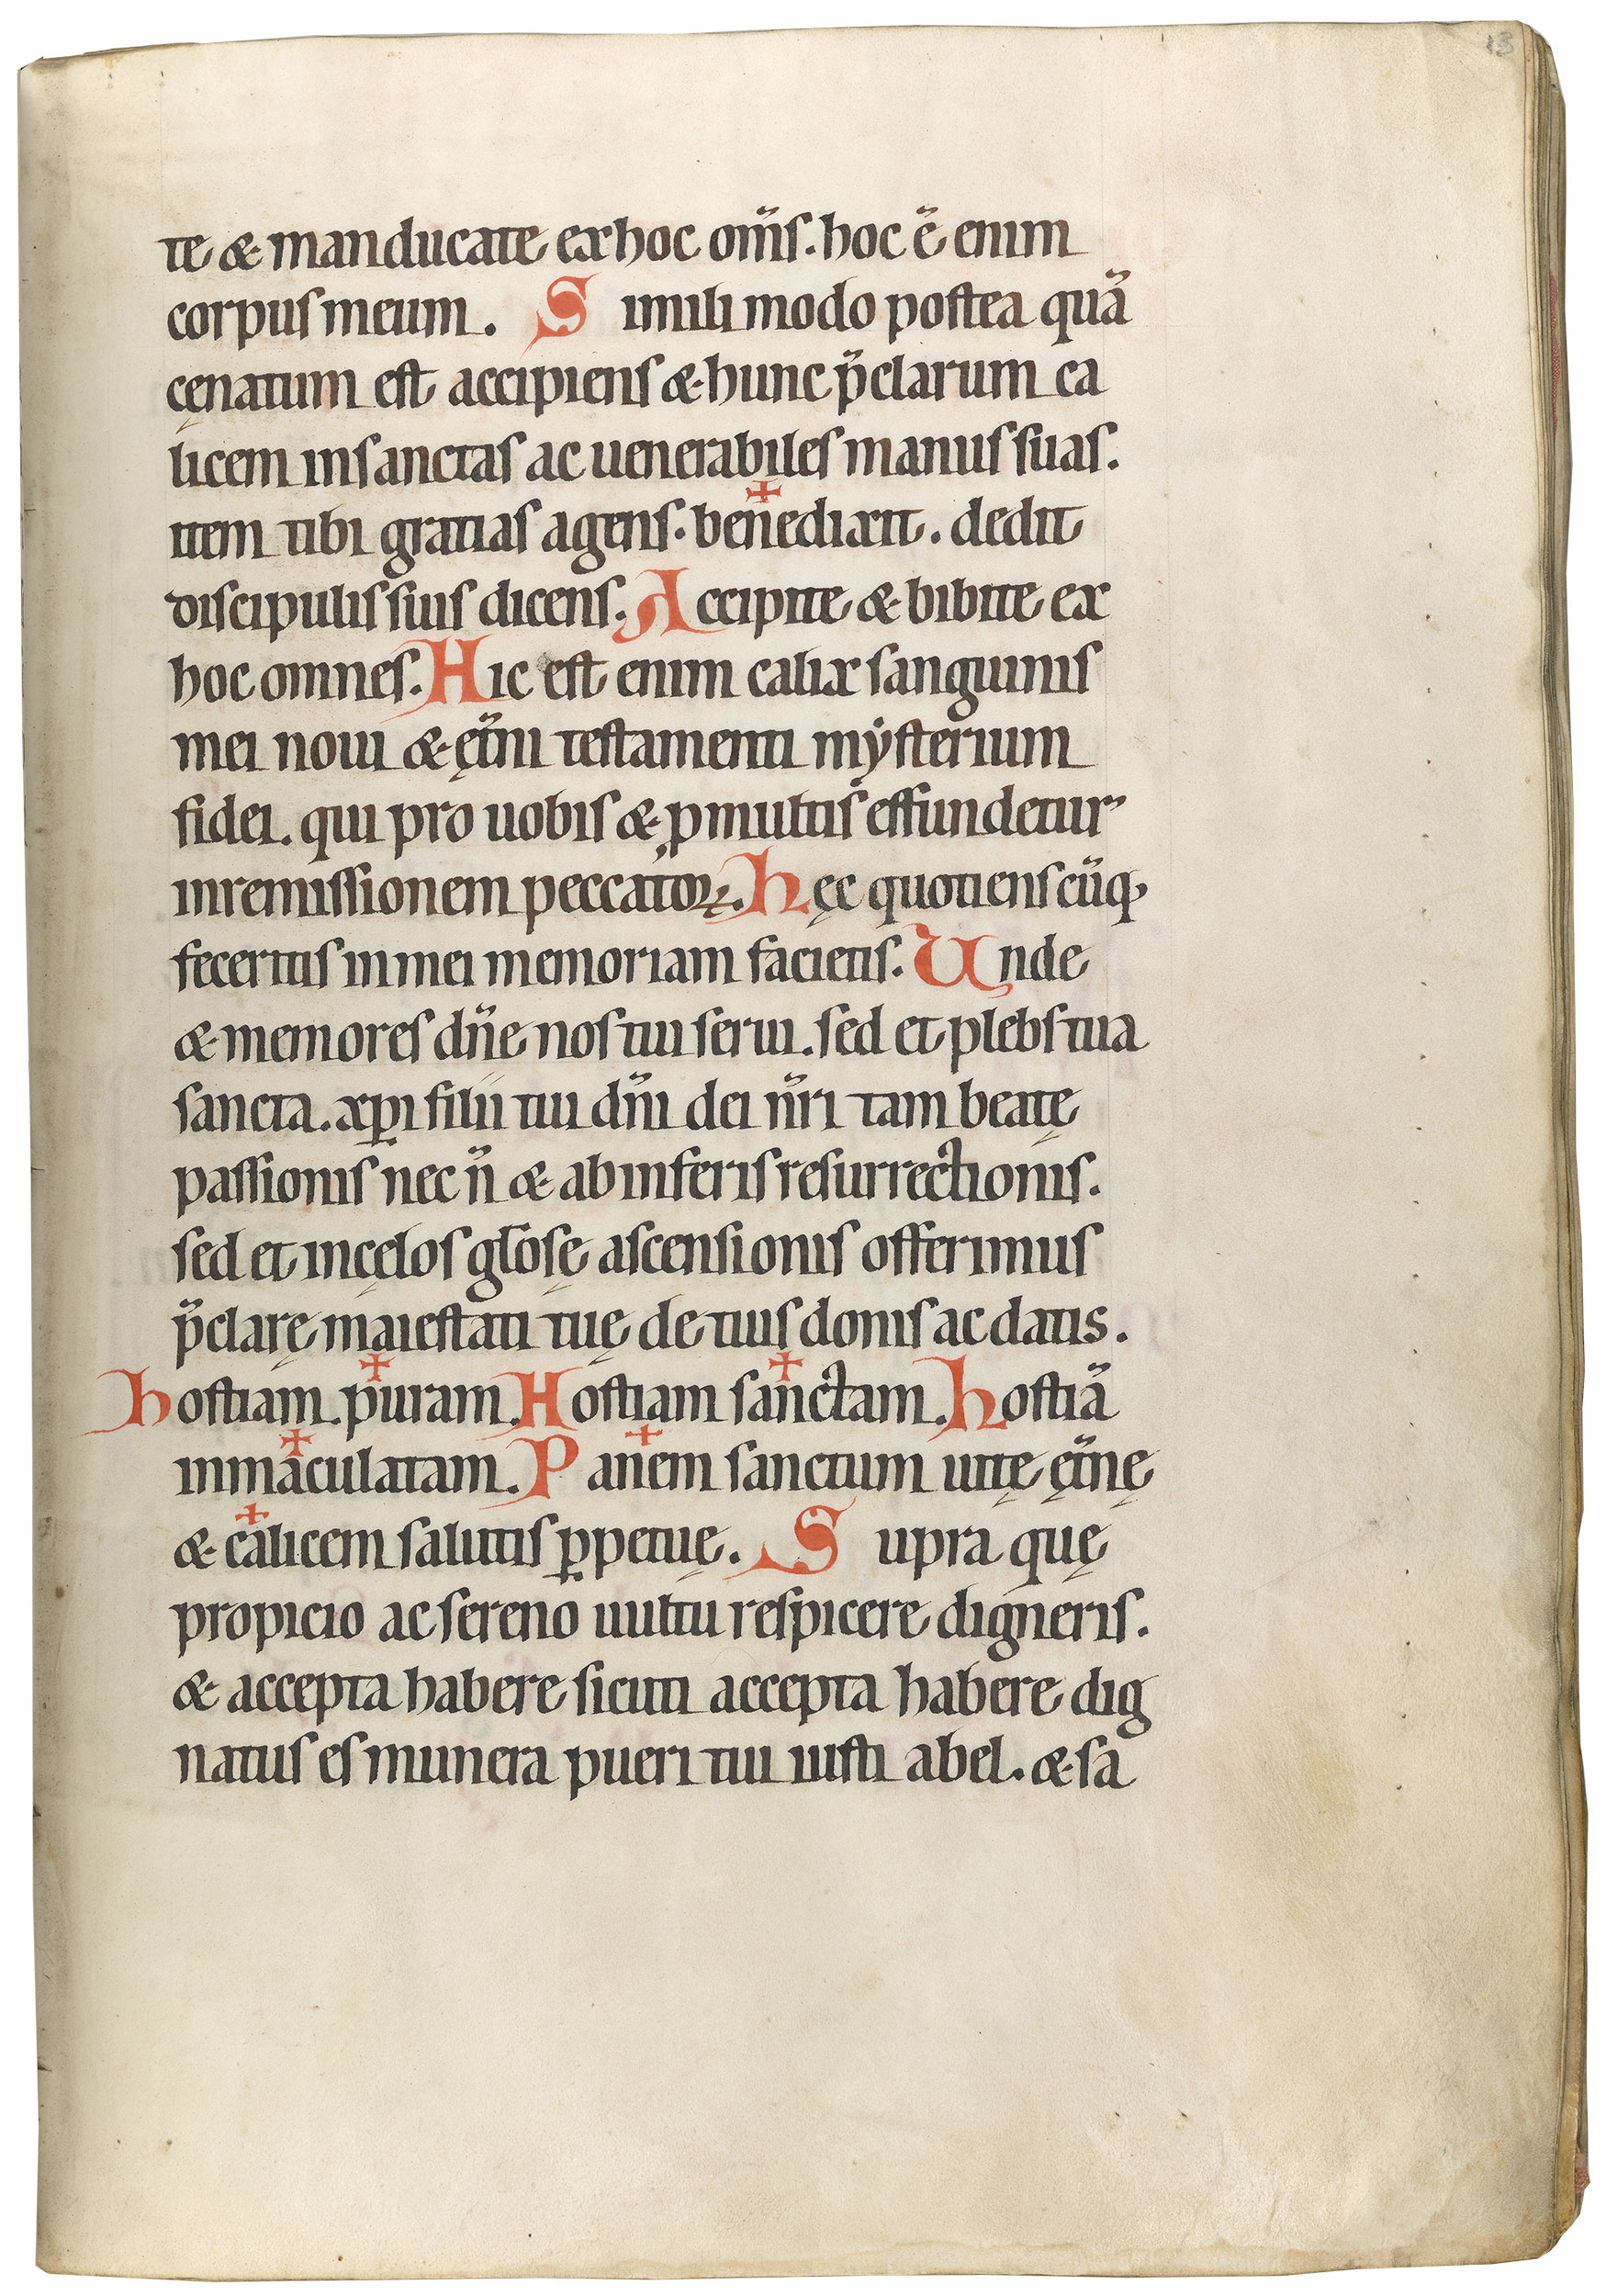 13
te & manducate ex hoc om̅s. hoc e̅ enim
corpus meum. Simili modo postea qua̅
cęnatum est accipiens & hunc p̅clarum ca
licem in sanctas ac uenerabiles manus suas.
item tibi gratias agens. bene✚dixit. dedit
discipulis suis dicens. Accipite & bibite ex
hoc omnes. Hic est enim calix sanguinis
mei noui & ęt̅ni testamenti mẏsterium
fidei. qui pro uobis & ꝓ multis effundetur
in remissionem peccatoꝝ. Hęc quotienscu̅q;
feceritis in mei memoriam facietis. Unde
& memores dn̅e nos tui serui. sed et plebs tua
sancta. xp̅i filii tui dn̅i dei nr̅i tam beatę
passionis nec n̅ & ab inferis resurrectionis.
sed et in cęlos gl̅osę ascensionis offerimus
p̅clarę maiestati tuę de tuis donis ac datis.
hostiam ✚ puram. Hostiam ✚ sanctam. hostia̅
inma✚culatam. Pa✚nem sanctum uitę ęt̅nę
& ca✚licem salutis ꝑpetuę. Supra quę
propicio ac sereno uultu respicere digneris.
& accepta habere sicuti accepta habere dig
natus es munera pueri tui iusti abel. & sa